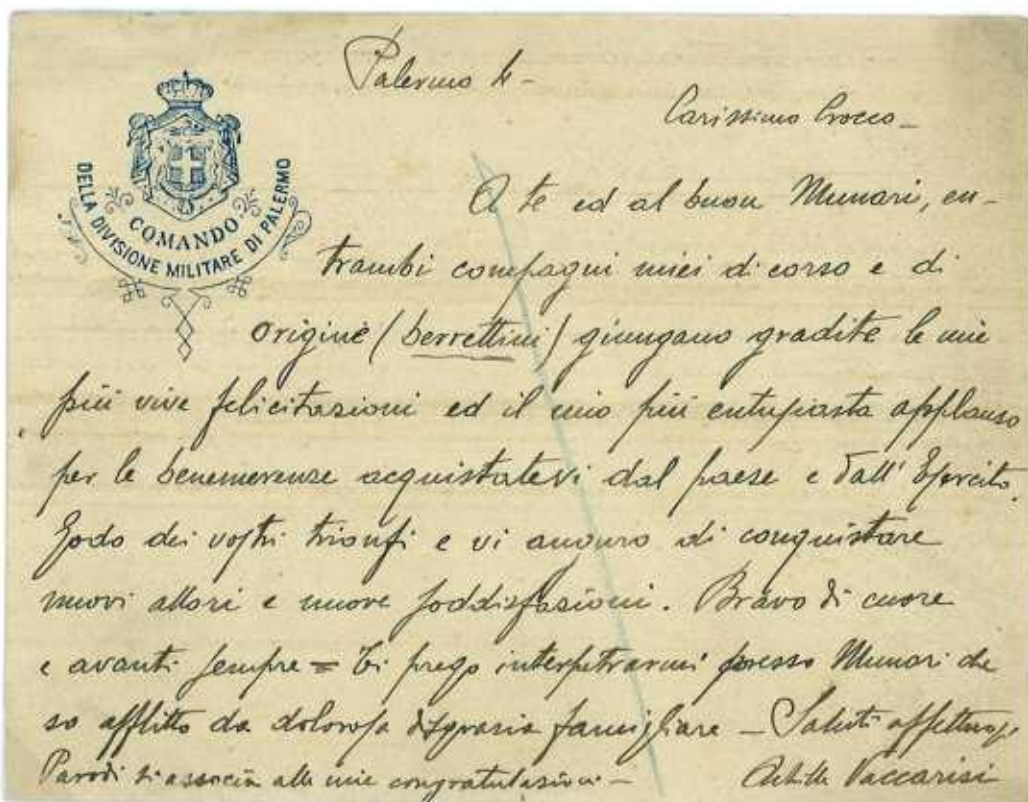 Palermo li -
Carissimo Crocco -
COMANDO
DELLA DIVISIONE MILITARE DI PALERMO
A te ed al buon Munari, en-
trambi compagni miei di corso e di
origine (berrettini) giungano gradite le mie
più vive felicitazioni ed il mio più entusiasta applauso
per le benemerenze acquistatevi dal paese e dall'Esercito.
Godo dei vostri trionfi e vi auguro di conquistare
nuovi allori e nuove soddisfazioni. Bravo di cuore
e avanti sempre = Ti prego interpetrarmi presso Munari che
so afflitto da dolorosa disgrazia famigliare - Saluti affettuosi
Parodi si associa alle mie congratulazioni - Achille Vaccarisi